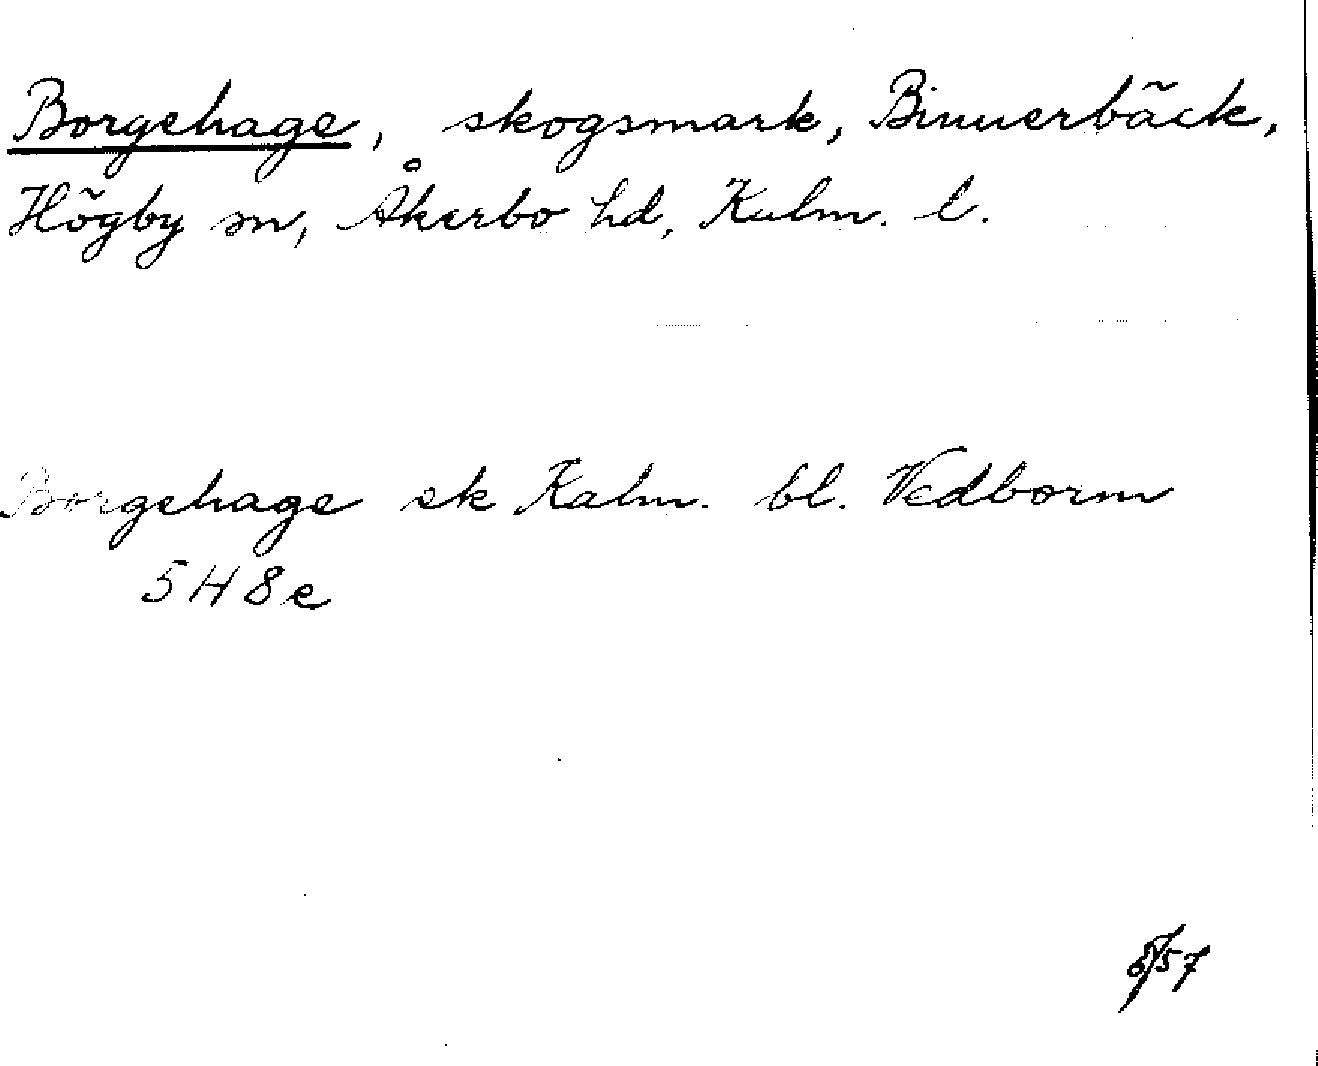 Borgehage, skogsmark, Binnerbäck,
Högby sn, Åkerbo hd, Kalm. l.
Borgehage ek Kalm. bl. Vedborm
5H8e